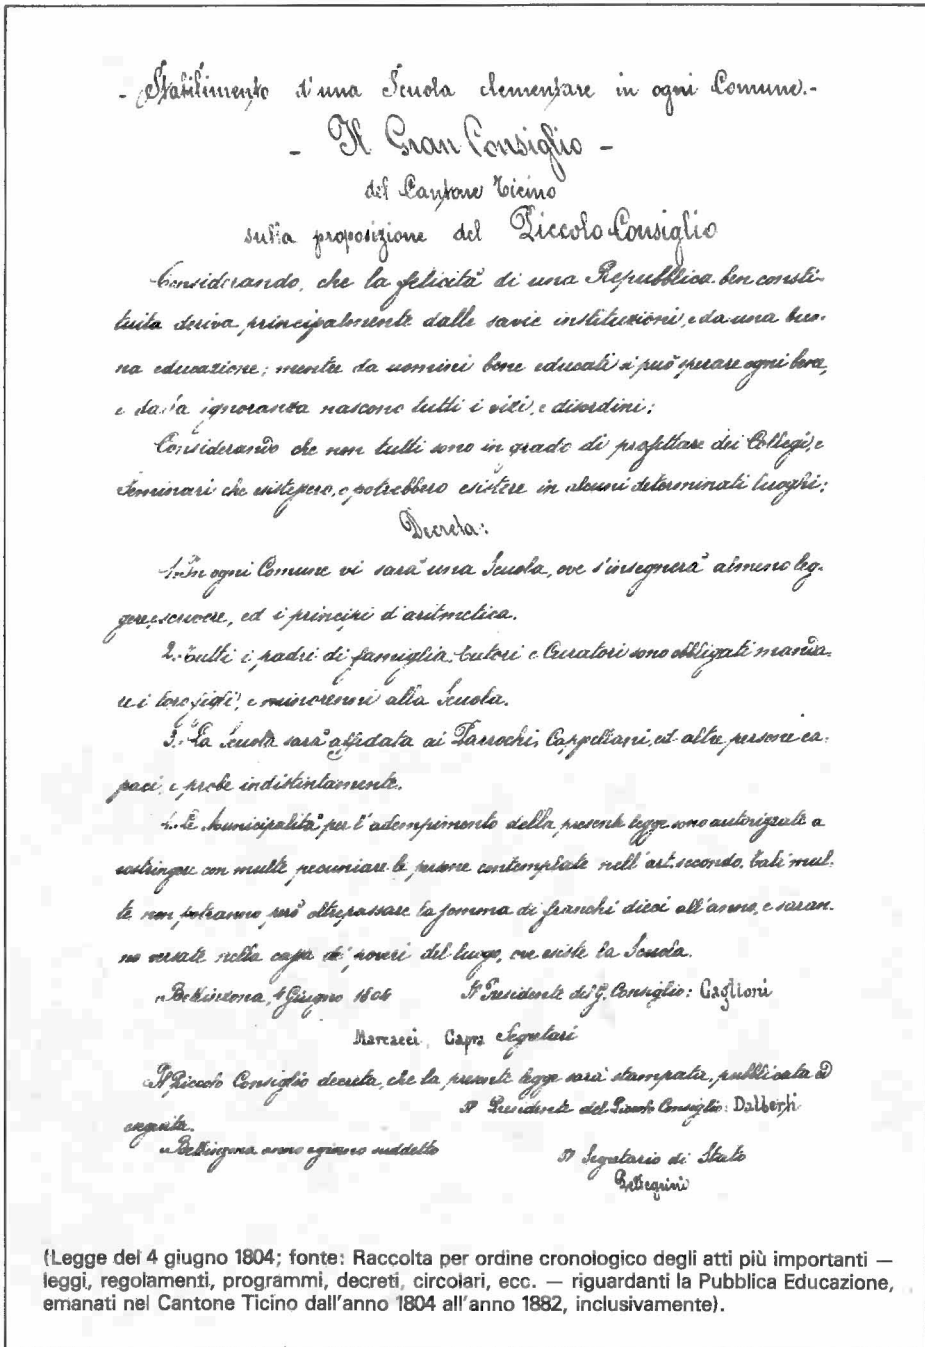 - Stabilimento d'una Scuola elementare in ogni Comune.-
- Il Gran Consiglio -
del Cantone Ticino
sulla proposizione del Piccolo Consiglio
Considerando, che la felicità di una Repubblica ben consti-
tuita deriva principalmente dalle savie instituzioni, e da una buo-
na educazione; mentre da uomini bene educati si può sperare ogni bene,
e dalla ignoranza nascono tutti i vizi, e disordini;
Considerando che non tutti sono in grado di profittare dei Collegi, e
Seminari che esistessero, o potrebbero esistere in alcuni determinati luoghi;
Decreta:
1. In ogni Comune vi sarà una Scuola, ove s'insegnerà almeno leg-
gere, scrivere, ed i principj d'aritmetica.
2. Tutti i padri di famiglia, Tutori e Curatori sono obbligati manda-
re i loro figli, e minorenni alla Scuola.
3. La Scuola sarà affidata ai Parrochi, Cappellani, ed altre persone ca-
paci, e probe indistintamente.
4. Le Municipalità per l'adempimento della presente legge sono autorizzate a
costringere con multe pecuniarie le persone contemplate nell'art. secondo. Tali mul-
te non potranno però oltrepassare la somma di franchi dieci all'anno, e saran-
no versate nella cassa de' poveri del luogo, ove esiste la Scuola.
Bellinzona, 4 Giugno 1804 Il Presidente del G. Consiglio: Caglioni
Marcacci, Capra Segretari
Il Piccolo Consiglio decreta, che la presente legge sarà stampata, pubblicata ed
Il Presidente del Piccolo Consiglio: Dalberti
eseguita.
Bellinzona anno e giorno suddetto
Il Segretario di Stato
Pellegrini
(Legge del 4 giugno 1804; fonte: Raccolta per ordine cronologico degli atti più importanti —
leggi, regolamenti, programmi, decreti, circolari, ecc. — riguardanti la Pubblica Educazione,
emanati nel Cantone Ticino dall'anno 1804 all'anno 1882, inclusivamente).